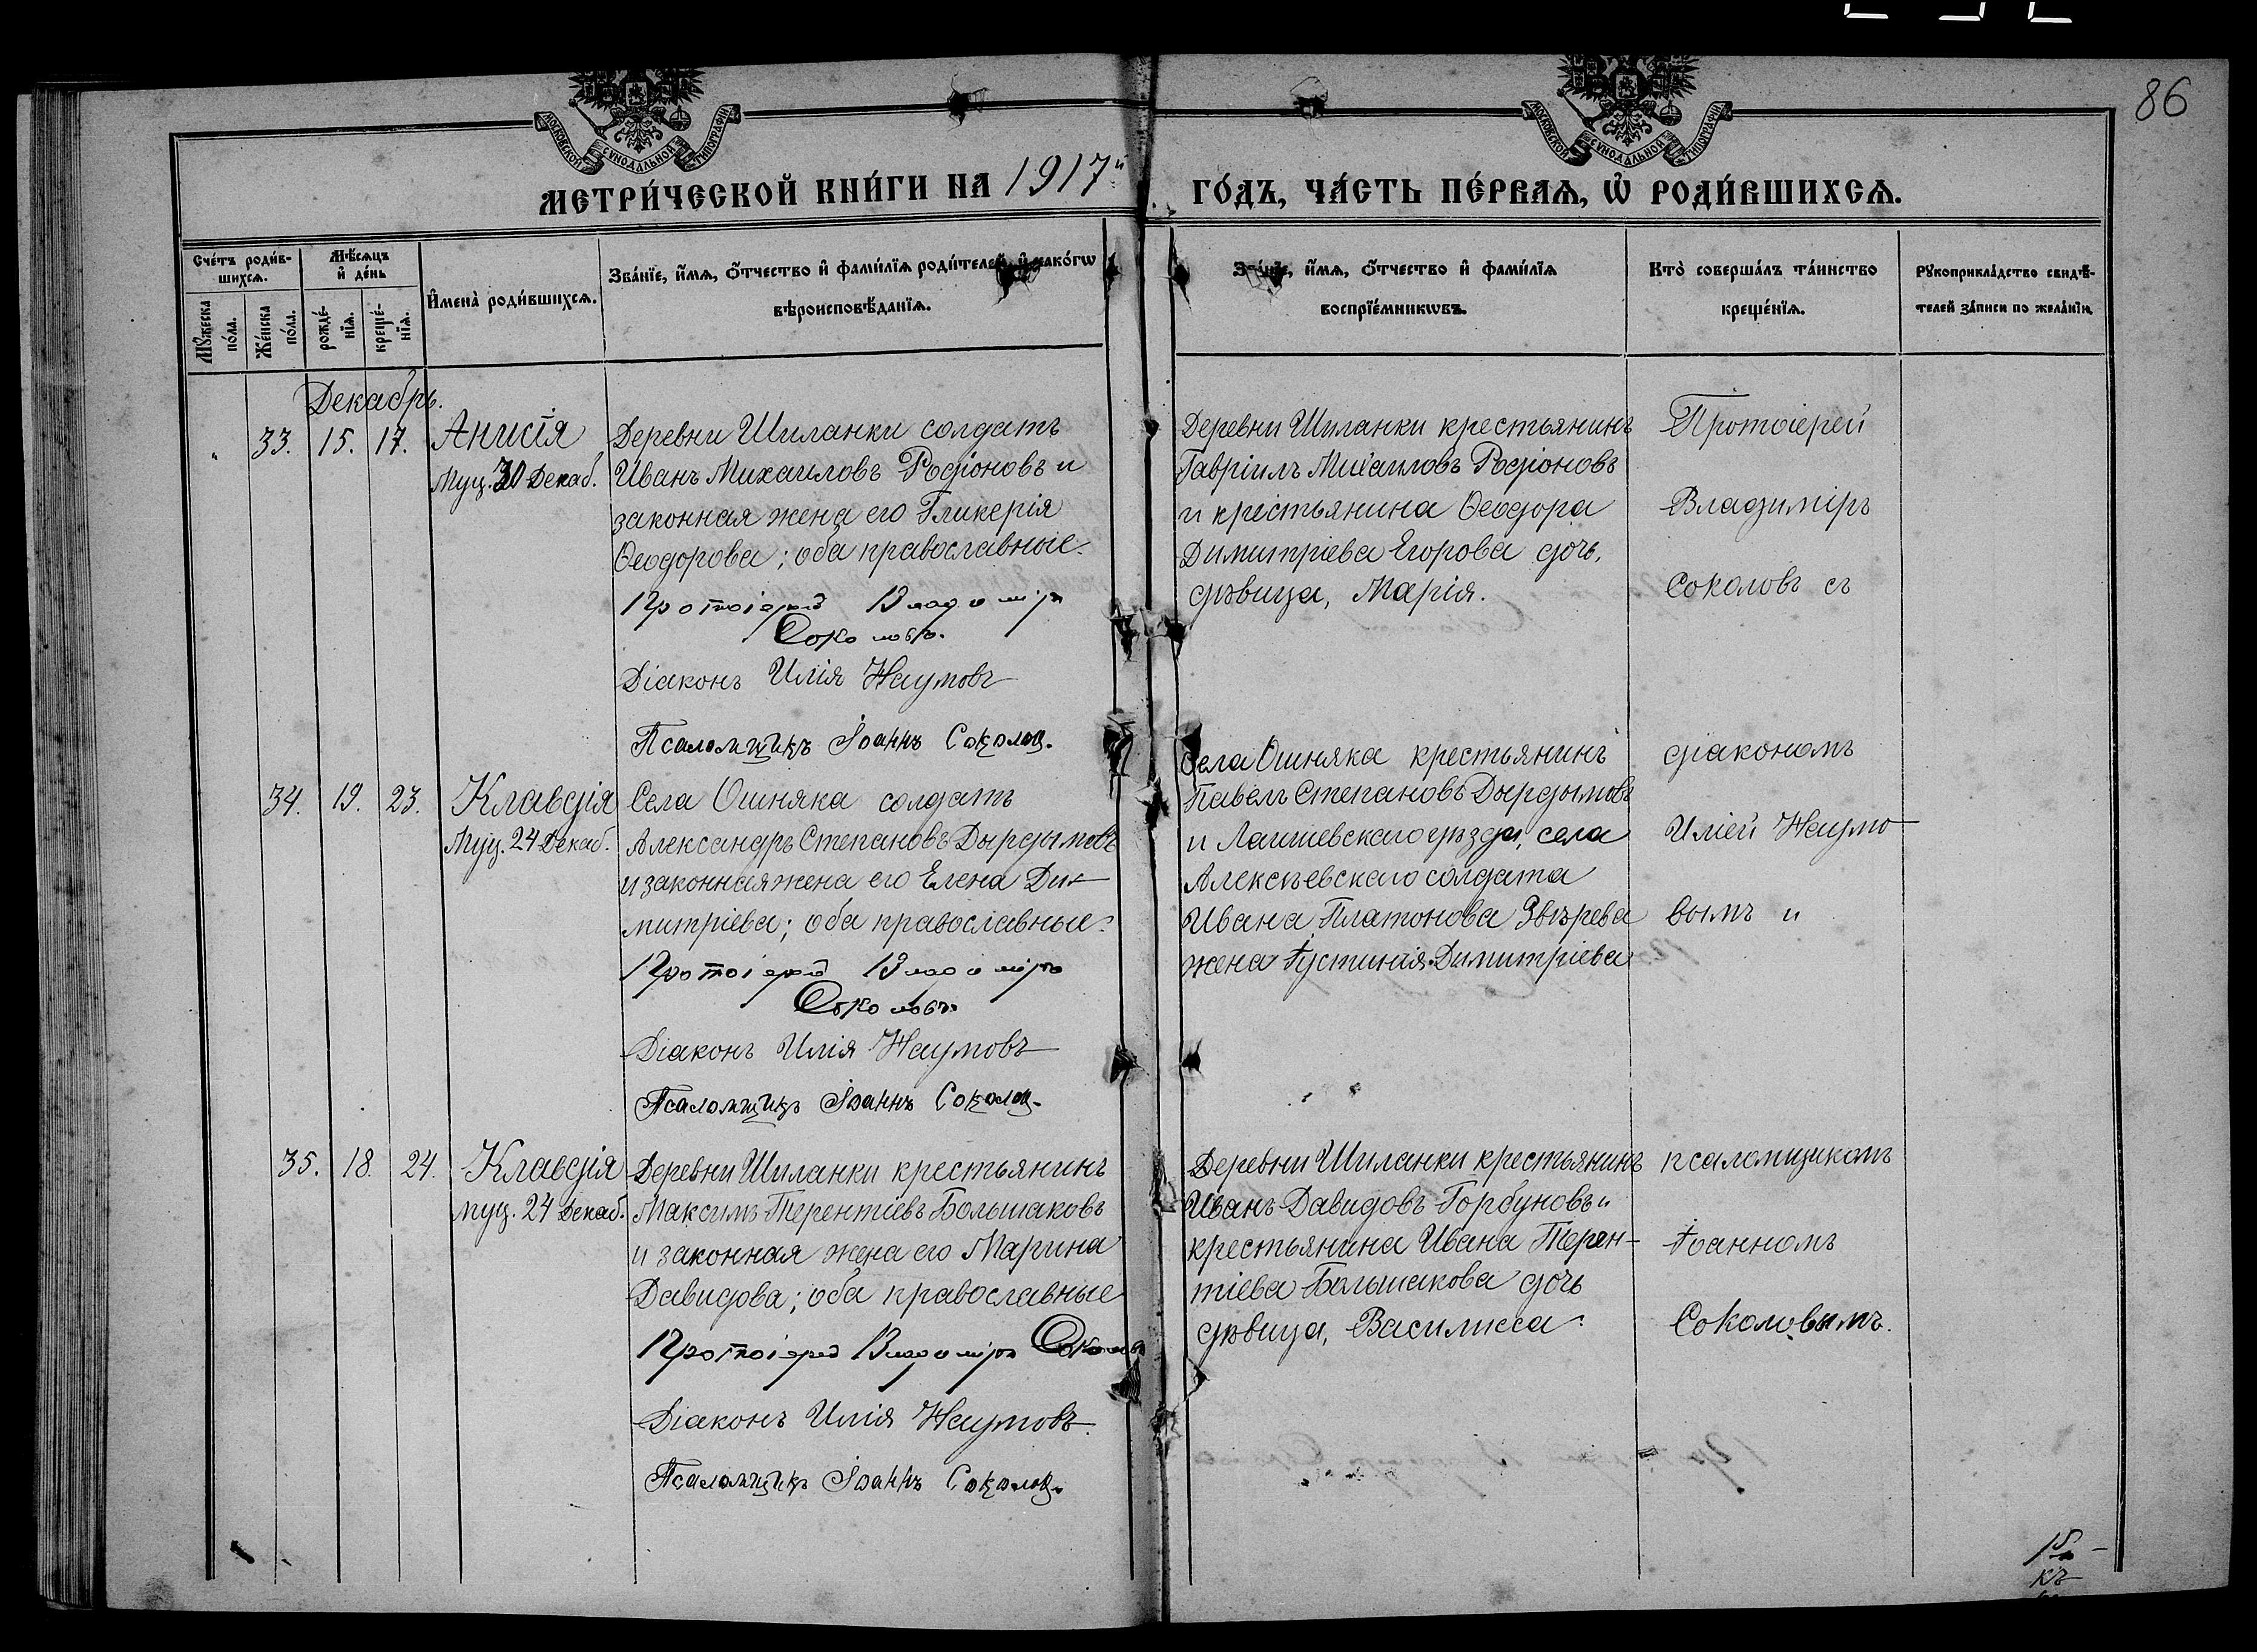 86
МОСКОВСКОЙ СѴНОДАЛЬНОЙ ТИПОГРАФІИ
МОСКОВСКОЙ СѴНОДАЛЬНОЙ ТИПОГРАФІИ
МЕТРИ́ЧЕСКОЙ КНИ́ГИ НА 1917й
ГО́ДЪ, ЧА́СТЬ ПЕ́РВАѦ, Ѽ РОДИ́ВШИХСѦ.
Сче́тъ роди́в-
шихсѧ.
Мꙋ́жеска
по́ла.
Же́нска
по́ла.
Мѣ́сѧцъ
и҆ де́нь
рожде́-
нїѧ.
креще́-
нїѧ.
И҆мена̀ роди́вшихсѧ.
Зва́нїе, и҆́мѧ, ѻ҆́тчество и҆ фами́лїѧ роди́телей, и҆ како́гѡ
вѣроисповѣ́данїѧ.
Зва́нїе, и҆́мѧ, ѻ҆́тчество и҆ фами́лїѧ
воспрїе́мникѡвъ.
Кто̀ соверша́лъ та́инство
креще́нїѧ.
Рꙋкоприкла́дство свидѣ́-
телей за́писи по жела́нїю.
Декабрь.
" 33. 15. 17. Анисія
Муц. 30 Декаб.
Деревни Шиланки солдатъ
Иванъ Михаиловъ Родіоновъ и
законная жена его Гликерія
Ѳеодорова; оба православные.
Протоіерей Владиміръ
Соколовъ.
Діаконъ Илія Наумовъ
Псаломщикъ Іоаннъ Соколов.
Деревни Шиланки крестьянинъ
Гавріилъ Михаиловъ Родіоновъ
и крестьянина Ѳеодора
Димитріева Егорова дочь,
дѣвица, Марія.
Протоіерей
Владиміръ
Соколовъ съ
34. 19. 23. Клавдія
Муц. 24 Декаб.
Села Ошняка солдатъ
Александръ Степановъ Дырдымовъ
и законная жена его Елена Ди-
митріева; оба православные.
Протоіерей Владиміръ
Соколовъ
Діаконъ Илія Наумовъ
Псаломщикъ Іоаннъ Соколов.
Села Ошняка крестьянинъ
Павелъ Степановъ Дырдымовъ
и Лаишевскаго уѣзда, села
Алексѣевскаго солдата
Ивана Платонова Звѣрева
жена Іустинія Димитріева
діакономъ
Иліей Наумо-
вымъ и
35. 18. 24. Клавдія
муц. 24 Декаб.
Деревни Шиланки крестьянинъ
Максимъ Терентіевъ Большаковъ
и законная жена его Марина
Давидова; оба православные
Протоіерей Владиміръ Соколовъ
Діаконъ Илія Наумовъ.
Псаломщикъ Іоаннъ Соколов.
Деревни Шиланки крестьянинъ
Иванъ Давидовъ Горбуновъ и
крестьянина Ивана Терен-
тіева Большакова дочь
дѣвица, Василисса
псаломщикомъ
Іоанномъ
Соколовымъ.